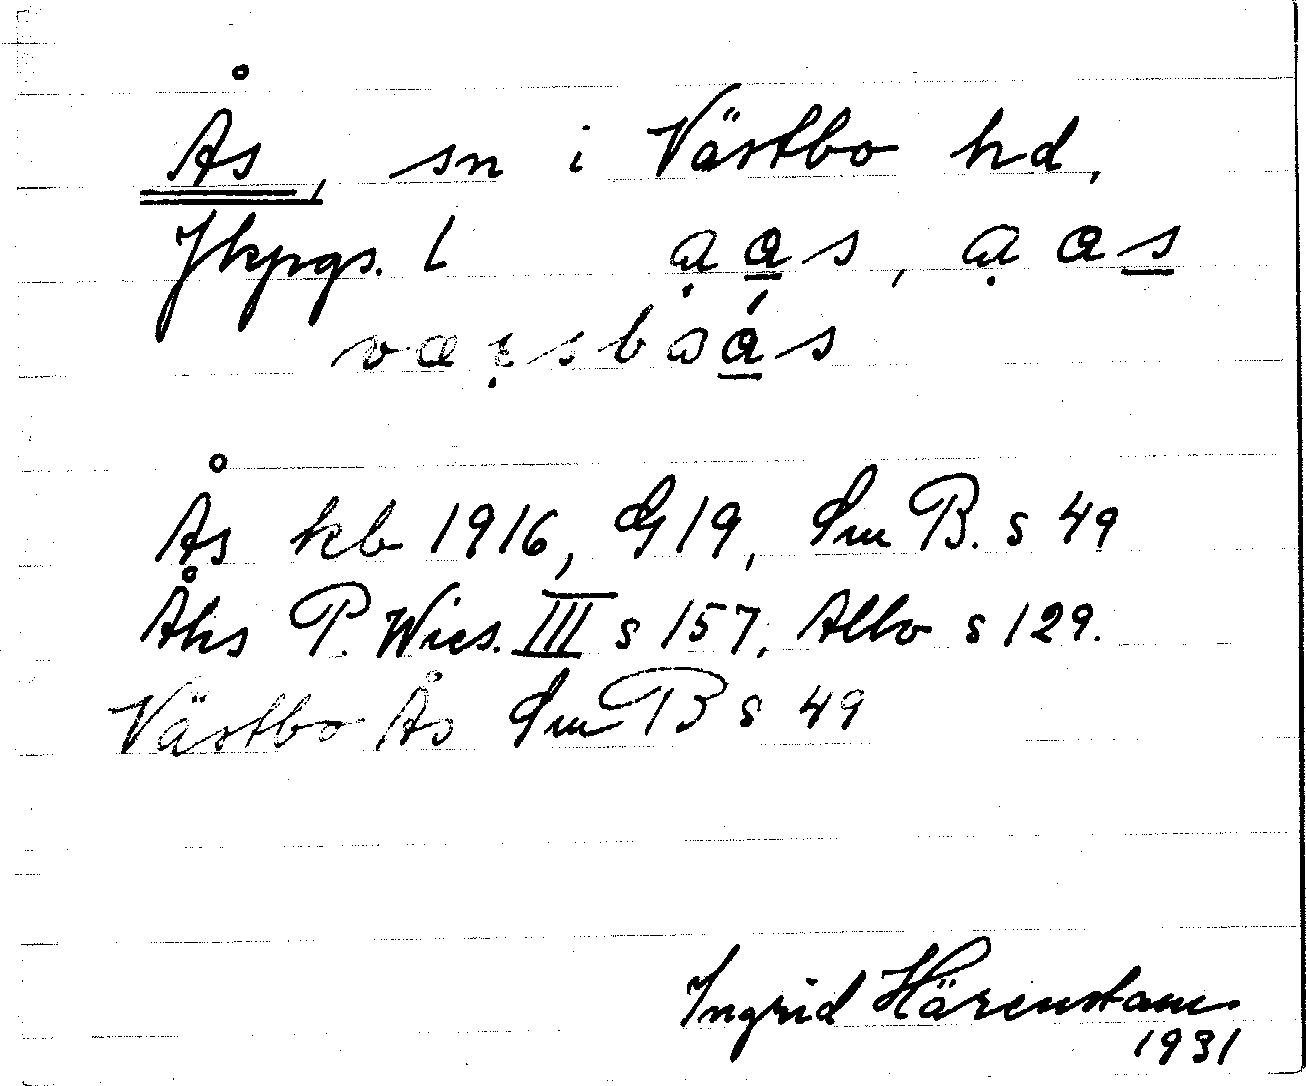 Ås, sn i Västbo hd,
Jkpgs. l ạa̲s, ạas̲
væṛsbɷá̲s
Ås kb 1916, G 19, Sm B. s 49
Åhs P. Wies. III s 157, Allvo s 129.
Västbo Ås Sm B s 49
Ingrid Härenstam
1931